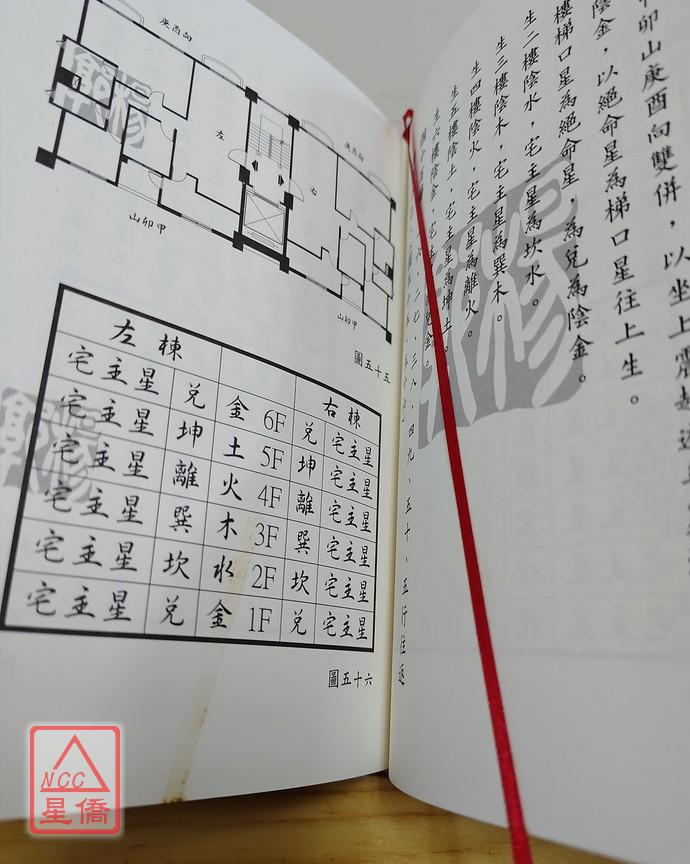 卯山庚酉向雙併，以坐上震起
陰金，以絕命星為梯口星往上生。
樓梯口星為絕命星，為兌為陰金。
生二樓陰水，宅主星為坎水。
生三樓陰木，宅主星為巽木。
生四樓陰火，宅主星為離火。
生五樓陰土，宅主星為坤土。
生六樓陰金，宅主
金。
二七、三八、四九、五十、五行往返
庚酉向
庚酉向
左
右
山卯甲
山卯甲
圖五十五
左棟 右棟
宅主星 兌 金 6F 兌 宅主星
宅主星 坤 土 5F 坤 宅主星
宅主星 離 火 4F 離 宅主星
宅主星 巽 木 3F 巽 宅主星
宅主星 坎 水 2F 坎 宅主星
宅主星 兌 金 1F 兌 宅主星
圖五十六
NCC
星僑